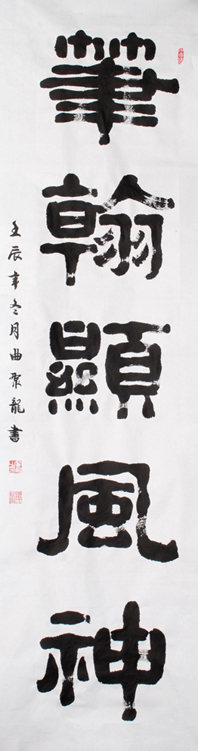 筆翰顯風神
壬辰年冬月曲聚龍書